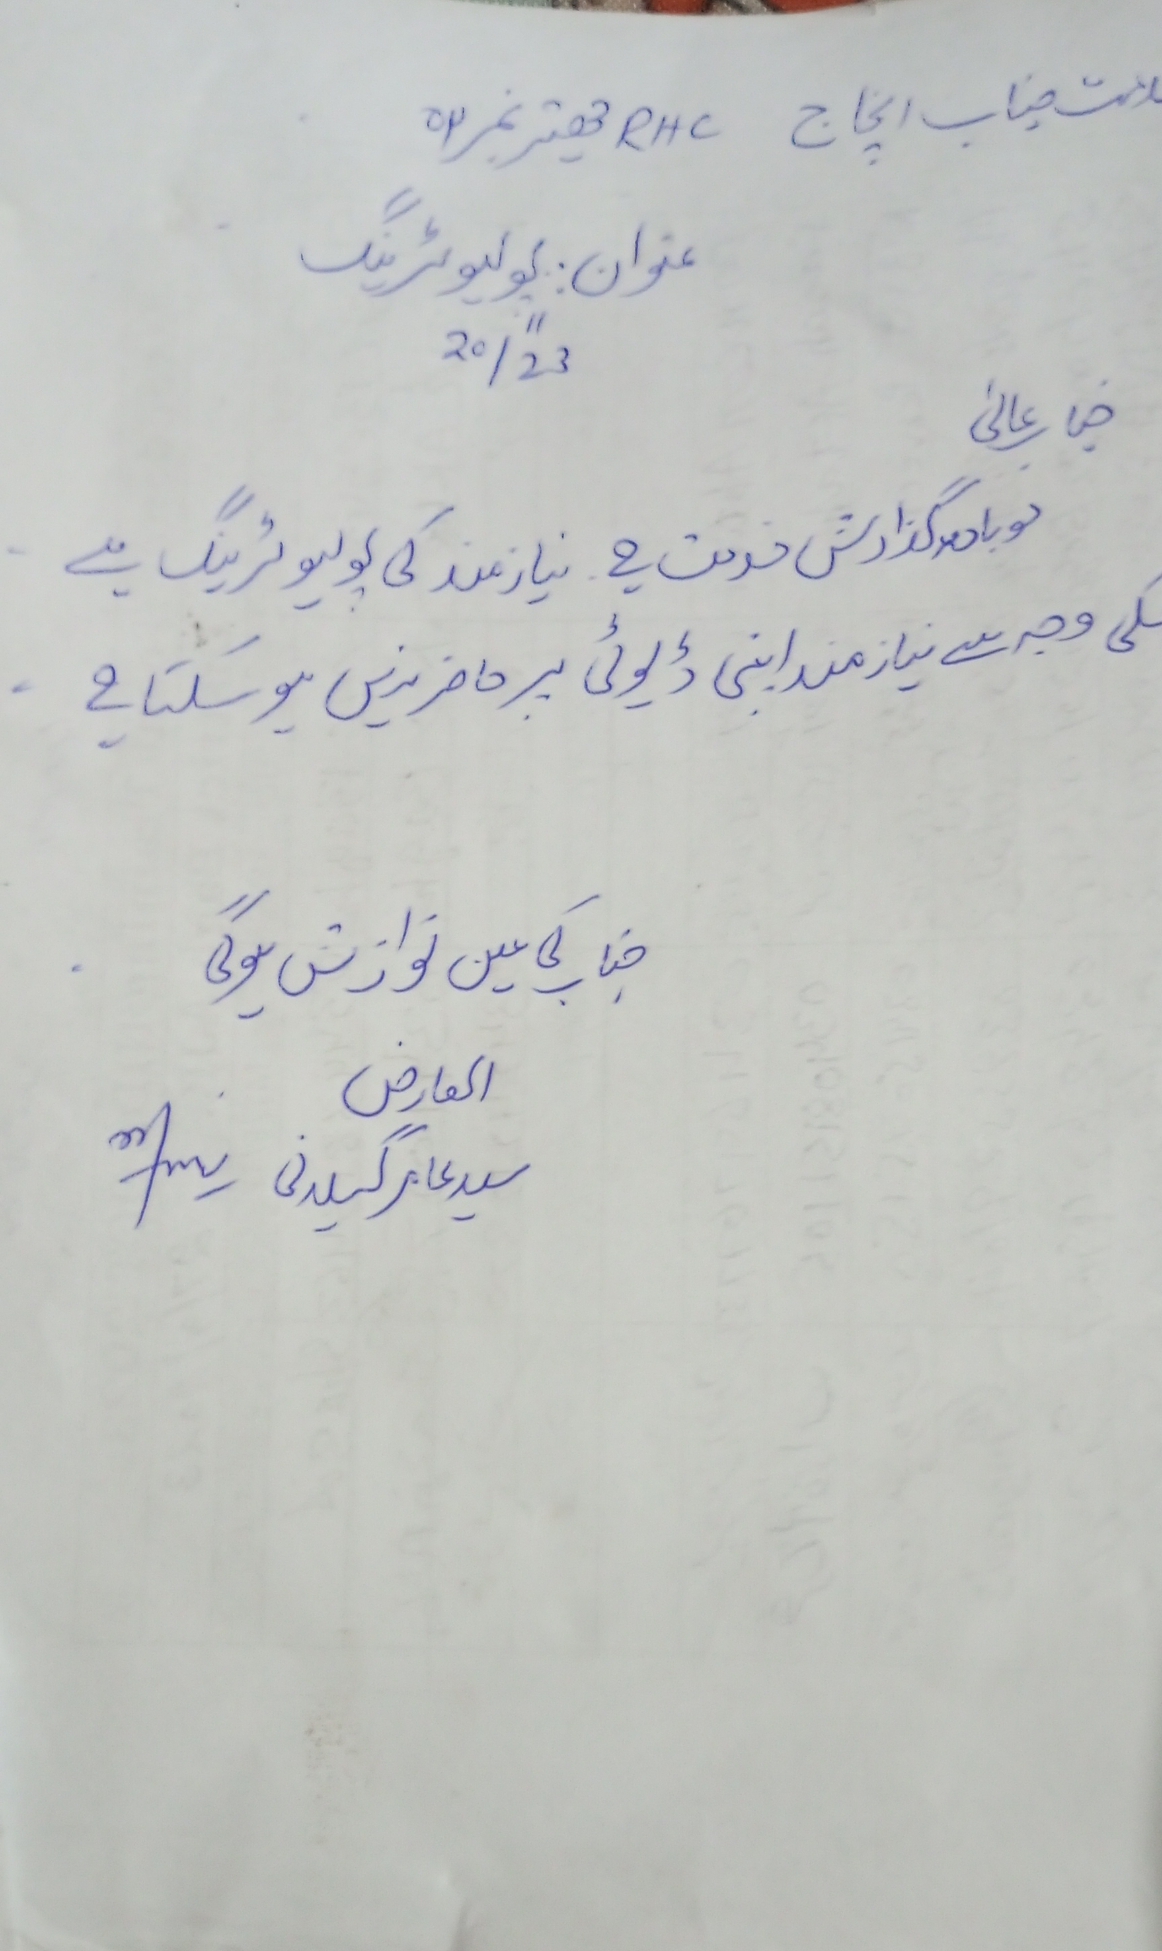 جناب انچاج RHC چھتر نمبر
عنوان: پولیو ٹرینگ
20/11/23
جناب عالی
گذارش خدمت ہے نیازمند کی پولیو ٹرینگ ہے -
وجہ سے نیازمند اپنی ڈیوٹی پر حاضر نہیں ہو سکتا ہے -
جناب کی عین نوازش ہوگی
العارض
سید عابر گیلانی